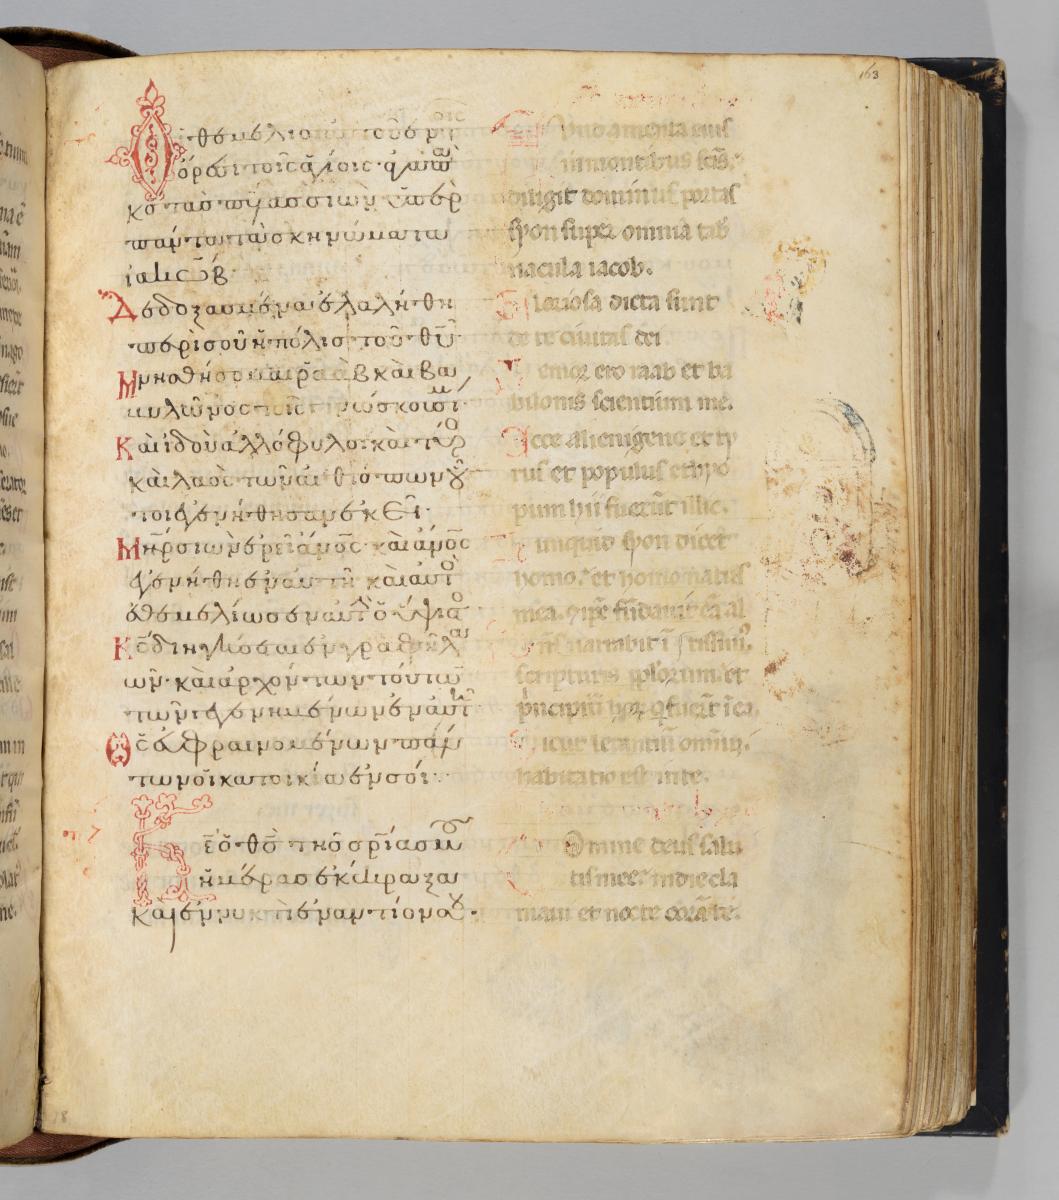 Οἱ θεμέλιοι αὐτοῦ ἐν τοῖς
ὄρεσι τοῖς ἁγίοις· ἀγαπᾷ
κς τὰς πύλας σιὼν ὑπὲρ
πάντα τὰ σκηνώματα
ἰακώβ.
Δεδοξασμένα ἐλαλήθη
περὶ σοῦ ἡ πόλις τοῦ θῦ
Μνησθήσομαι ραὰβ καὶ βα
βυλῶνος τοῖς γινώσκουσι
Καὶ ἰδοὺ ἀλλόφυλοι καὶ τύρο
καὶ λαὸς τῶν αἰθιόπων οὗ
τοι ἐγενήθησαν ἐκεῖ·
Μηρ σιὼν ἐρεῖ ἄνος· καὶ ἄνος
ἐγενήθη ἐν αὐτῇ καὶ αὐτὸ
ἐθεμελίωσεν αὐτ ὁ ὕψιστο
Κς διηγήσεται ἐν γραφῇ λα
ῶν· καὶ ἀρχόντων τούτω
τῶν γεγενημένων ἐν αὐτῇ
Ὡς εὐφραινομένων πάν
των ἡ κατοικία ἐν σοί·
Κε ὁ θς τῆς σρίας μου
ἡμέρας ἐκέκραξα
καὶ ἐν νυκτὶ ἐναντίον σου·
163
Fundamenta eius
in montibus scis.
diligit dominus portas
syon super omnia tab
nacula iacob.
Gloriosa dicta sunt
de te civitas dei
Memor ero raab et ba
bilonis scientium me.
Ecce alienigene et ty
rus et populus ethyo
pum hii fuerūt illic.
Nunquid syon dicet
homo. et homo natus
in ea. ipse fūdavit eā al
Dn̄s narrabit ī tissim⁹.
scripturis pplorum et
pncipiū hoꝝ q fuerūt ī ea.
Sicut letantiū omniū.
habitatio est in te.
Domine deus salu
tis mee. in die cla
mavi et nocte corā te.